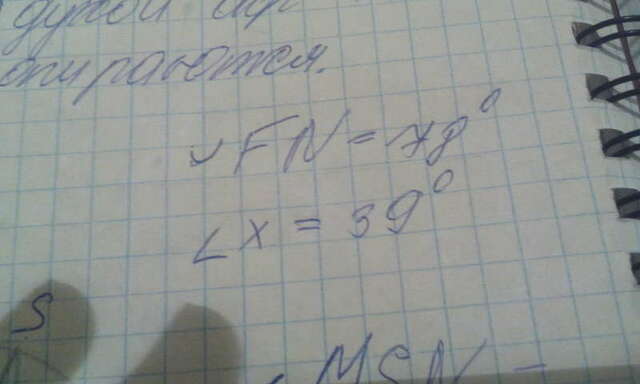 дугой
опираются.
◡FN = 78°
∠x = 39°
S
∠MSN =